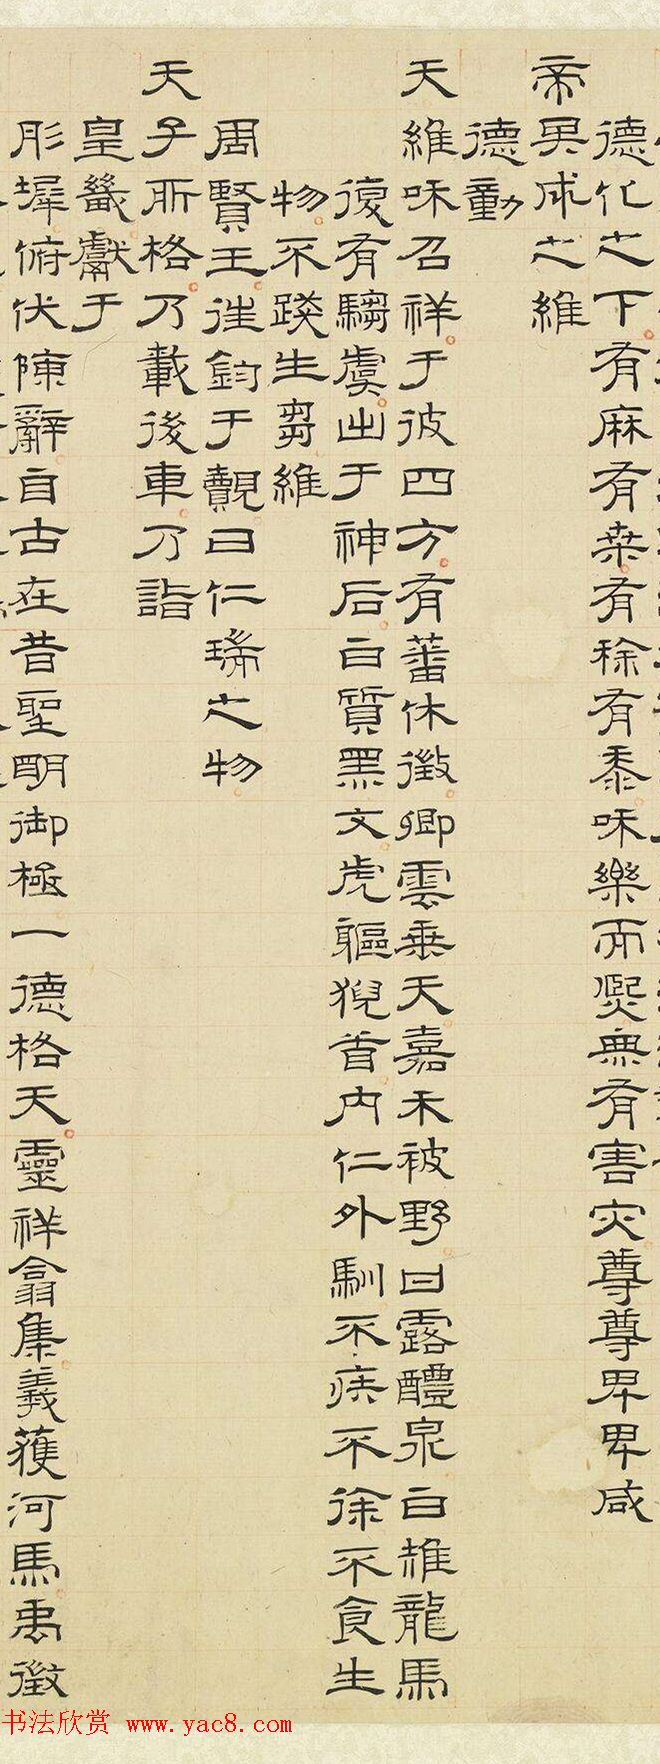 德化之下有麻有桒有稌有黍咊樂而熈無有害灾尊尊卑卑咸
帝其成之維
德動
天維咊召祥于彼四方有蕃休徵卿雲乘天嘉禾被野甘露醴泉白雉龍馬
復有騶虞出于神后白質黑文虎軀猊首内仁外馴不疾不徐不食生
物不踐生芻維
周賢王徃鈞于覿曰仁瑞之物
天子所格乃載後車乃詣
皇畿獻于
彤墀俯伏陳辭自古在昔聖明御極一德格天靈祥翕集羲獲河馬禹徵
书法欣赏 www.yac8.com